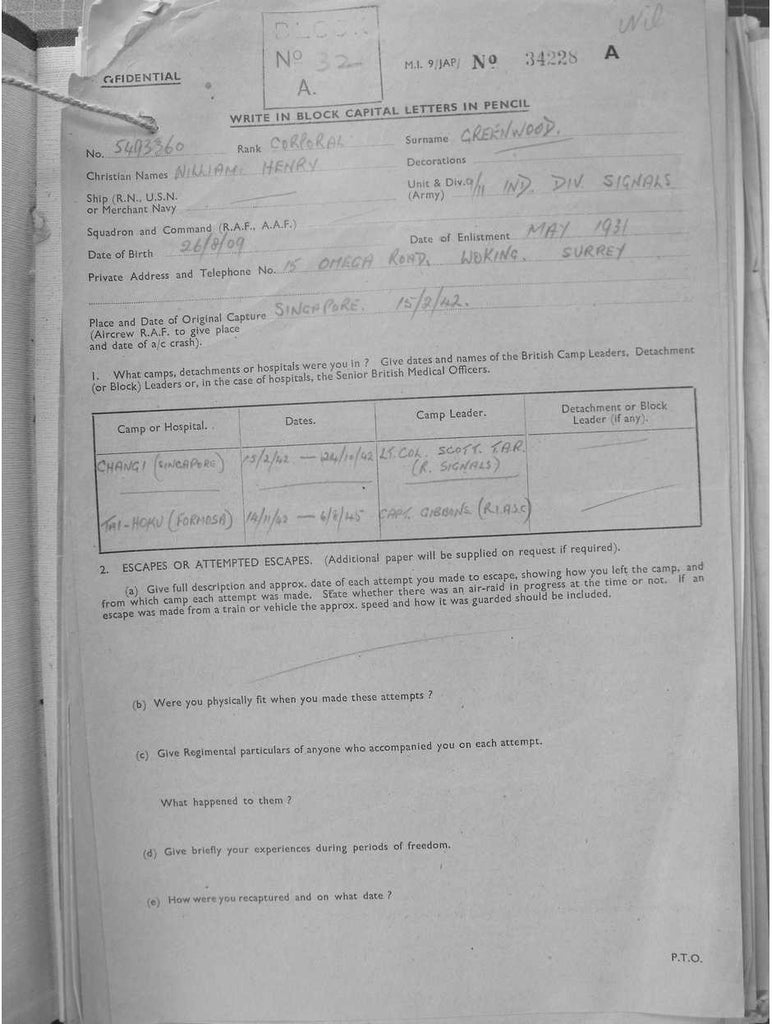 Nil
BLOCK
Nº 32
A.
M.I. 9/JAP/ Nº 34228 A
FIDENTIAL
WRITE IN BLOCK CAPITAL LETTERS IN PENCIL
No. 5493360 Rank CORPORAL Surname GREENWOOD.
Christian Names WILLIAM HENRY Decorations
Ship (R.N., U.S.N. or Merchant Navy
Unit & Div. 9/11 IND. DIV SIGNALS
(Army)
Squadron and Command (R.A.F., A.A.F.)
Date of Birth 26/8/09 Date of Enlistment MAY 1931
Private Address and Telephone No. 15 OMEGA ROAD. WOKING. SURREY
Place and Date of Original Capture SINGAPORE. 15/2/42.
(Aircrew R.A.F. to give place
and date of a/c crash).
1. What camps, detachments or hospitals were you in ? Give dates and names of the British Camp Leaders, Detachment
(or Block) Leaders or, in the case of hospitals, the Senior British Medical Officers.
Camp or Hospital. Dates. Camp Leader. Detachment or Block
Leader (if any).
CHANGI (SINGAPORE) 15/2/42 — 24/10/42 LT. COL. SCOTT. T.A.R.
(R. SIGNALS)
TAI-HOKU (FORMOSA) 14/11/42 — 6/9/45 CAPT. GIBBONS (R.I.A.S.C)
2. ESCAPES OR ATTEMPTED ESCAPES. (Additional paper will be supplied on request if required).
(a) Give full description and approx. date of each attempt you made to escape, showing how you left the camp, and
from which camp each attempt was made. State whether there was an air-raid in progress at the time or not. If an
escape was made from a train or vehicle the approx. speed and how it was guarded should be included.
(b) Were you physically fit when you made these attempts ?
(c) Give Regimental particulars of anyone who accompanied you on each attempt.
What happened to them ?
(d) Give briefly your experiences during periods of freedom.
(e) How were you recaptured and on what date ?
P.T.O.